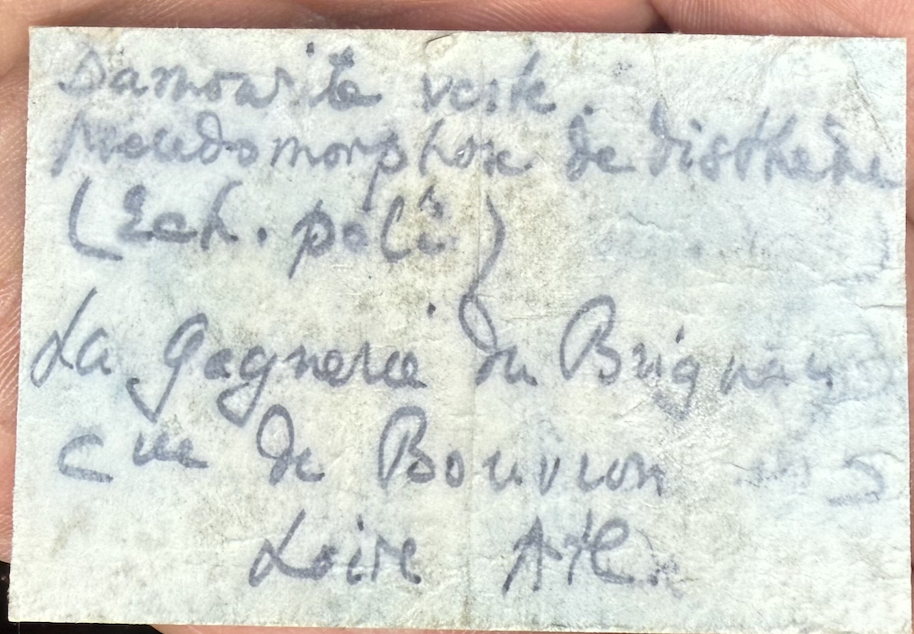 Damourite verte
pseudomorphose de disthène
(Ech. poli)
La Gagnerie du Brignau
cne de Bouvron
Loire Atl.